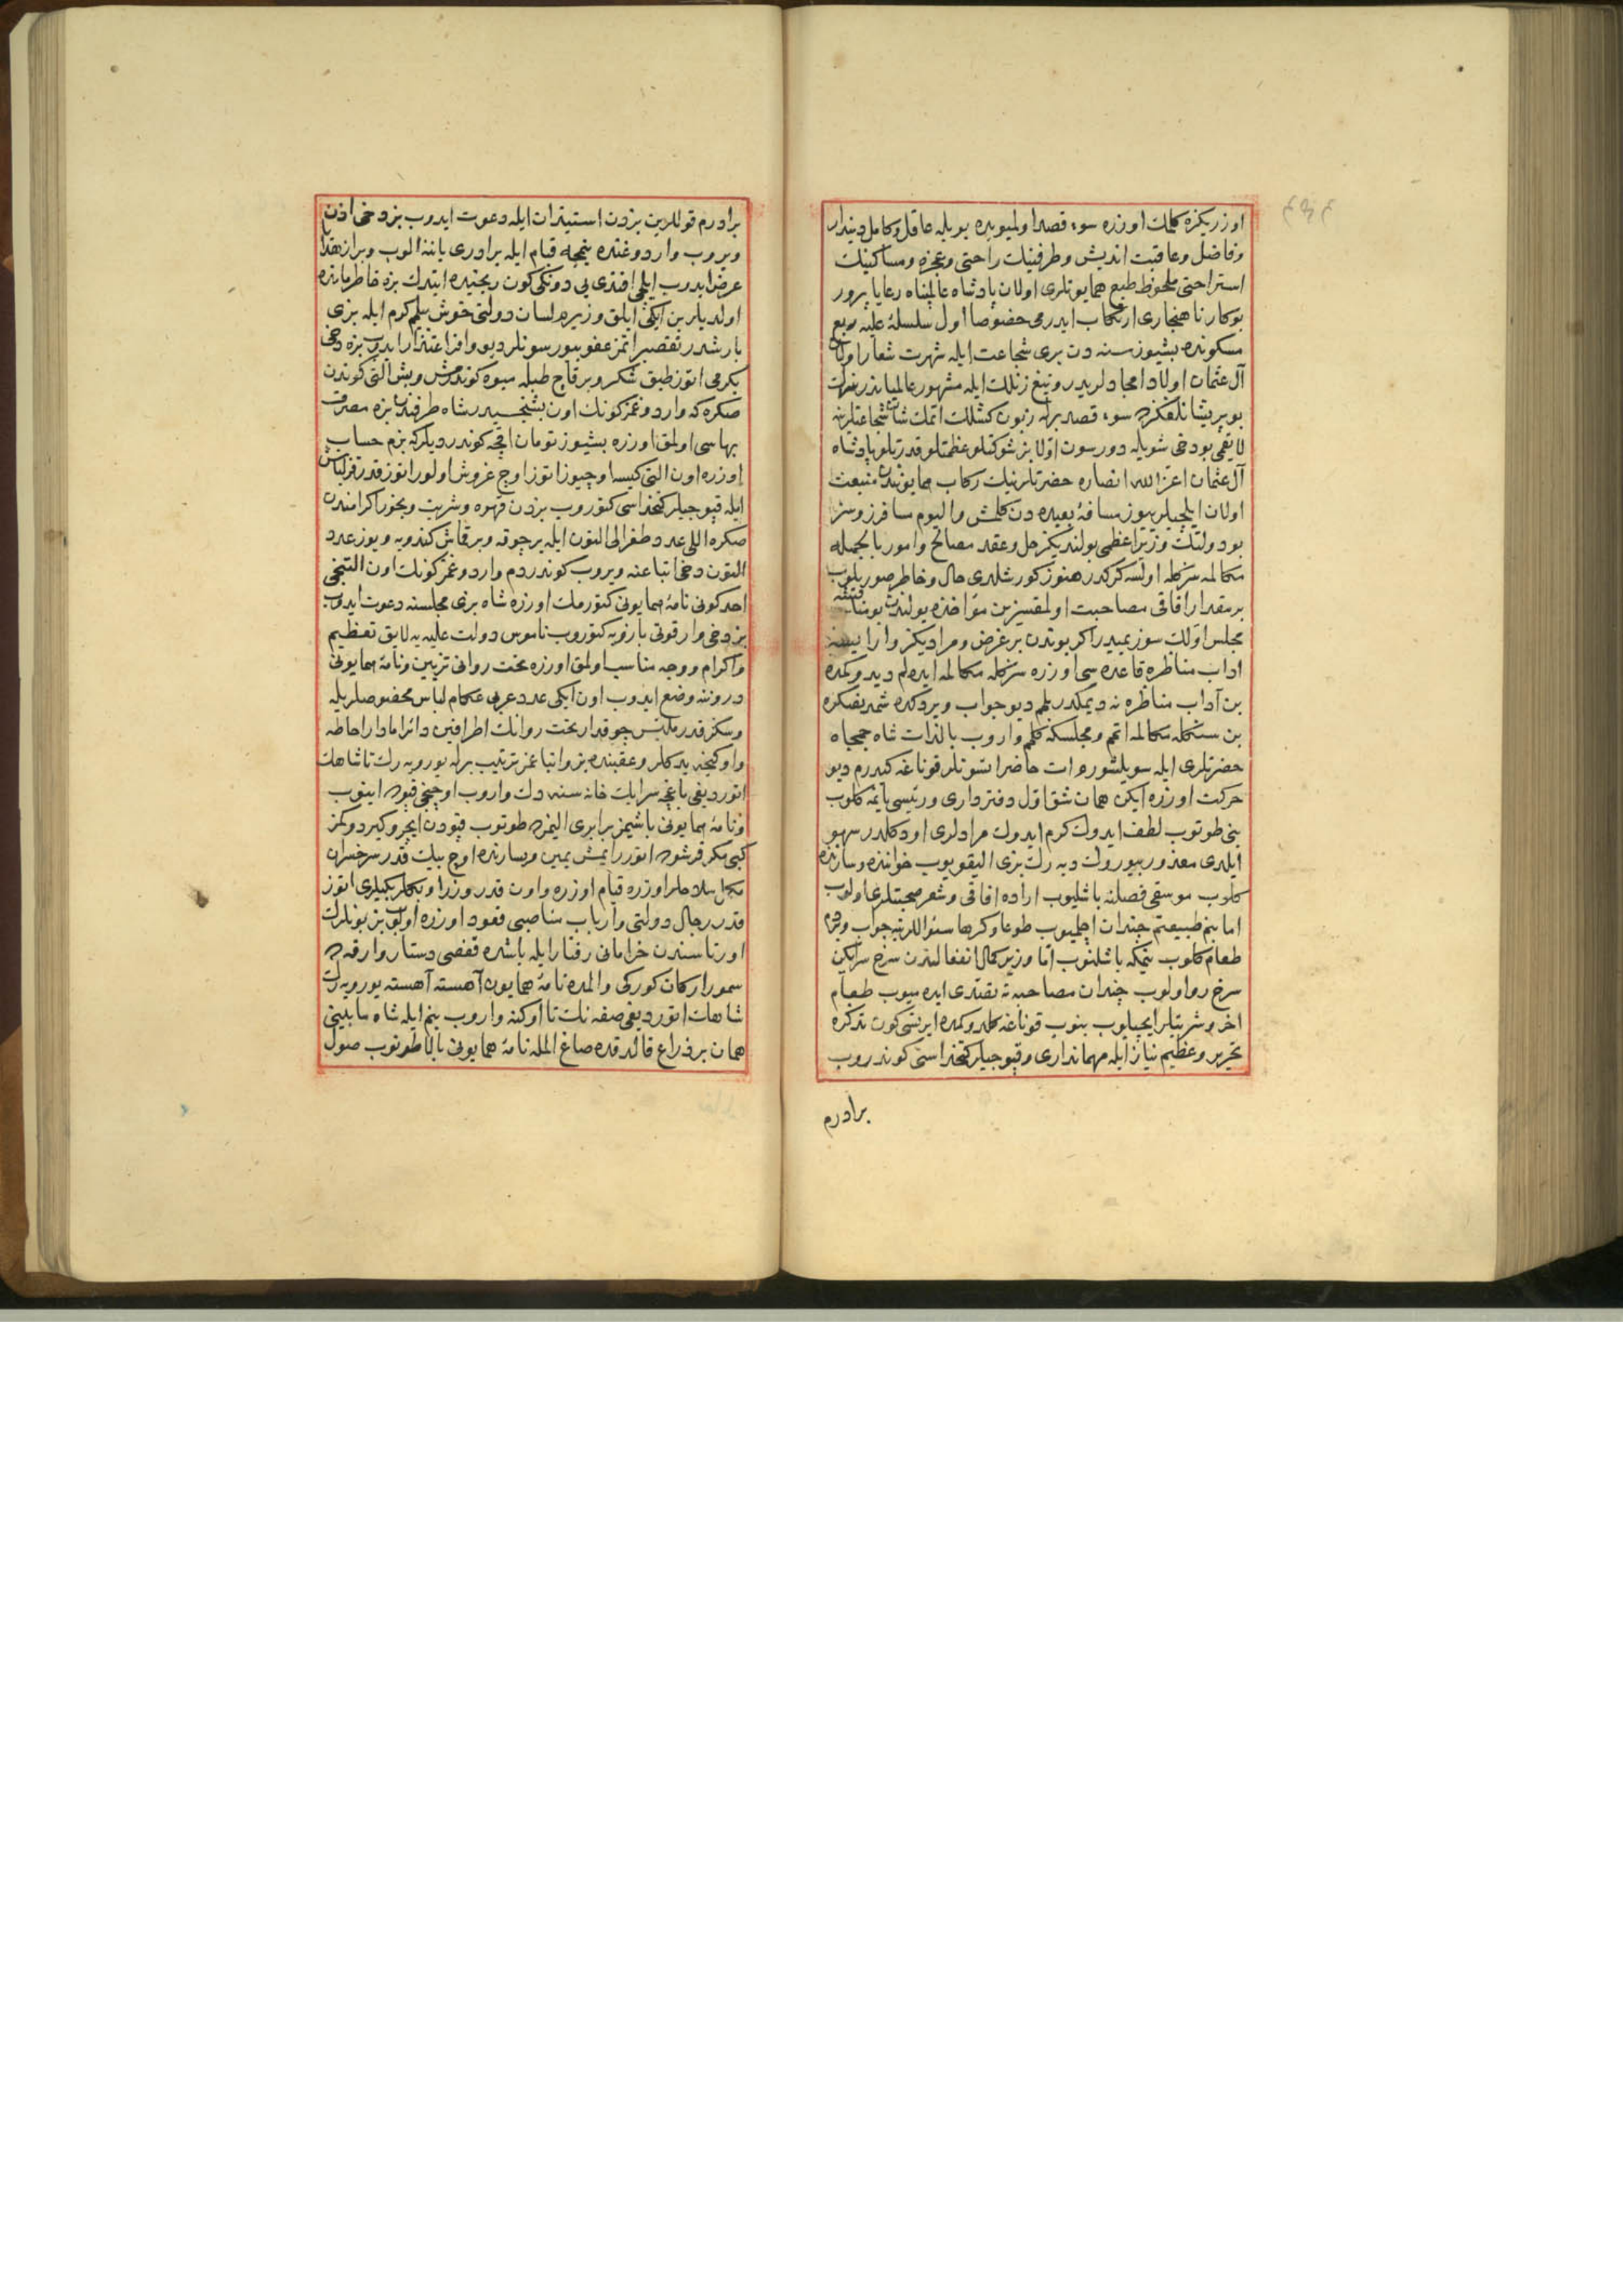 اوزریکزه کلمك اوزره سوء قصد اولمیوبده بویله عاقل وکامل دیندار
وفاضل وعاقبت اندیش وطرفینك راحتی وعجزه ومساکینك
استراحتی ملحوظ طبع همایونلری اولان پادشاه عالمپناه رعایا پرور
بو کار ناهنجاری ارتکاب ایدرمی خصوصا اول سلسلهٔ علیه ربع
مسکونده بشیوز سنه دن بری شجاعت ایله شهرت شعار اولان
آل عثمان اولاد امجادلریدر
بو پریشانلغکزه سوء قصد برله زبون کشلك اتمك شان شجاعتلرینه
لایقمی بو دخی شویله دورسون اولا بز شوکتلو عظمتلو قدرتلو پادشاه
آل عثمان اعز الله انصاره حضرتلرینك رکاب همایونندن منبعث
اولان ایلچیلریوز مسافهٔ بعیده دن کلمش والیوم مسافرز وسز
بو دولتك وزیر اعظمی بولندیکز حل وعقد مصالح وامور بالجمله
مکالمه سزکله اولسه کرکدر هنوز کورشلدی حال وخاطر صوریلوب
بر مقدار افاقی مصاحبت اولمقسزین مؤاخذه یولندن
مجلس اوّلك سوزیمیدر اکر بوندن بر غرض ومرادیکز وار ایسه
اداب مناظره قاعده سی اوزره سزکله مکالمه ایده لم دیدوکمده
بن آداب مناظره نه دیمکدر بلمم دیو جواب ویردکده شمدیفسکره
بن سنکله مکالمه اتمم ومجلسکه کلمم واروب بالذات شاه جمجاه
حضرتلری ایله سویلشورم ات حاضر اتسونلر قوناغه کیدرم دیو
حرکت اوزره ایکن همان شق اول دفترداری ورئیسی یانمه کلوب
بنی طوتوب لطف ایدوك کرم ایدوك مرادلری او دکلدر سهو
ایلدی معذور بیورك دیه رك بزی الیقویوب خواننده وسازنده
کلوب موسقی فصلنه باشلیوب اراده افاقی وشعر صحبتلری اولوب
اما بنم طبیعتم چندان اچلمیوب طوعا وکرها سؤاللرینه جواب ویردم
طعام کلوب ینمکه باشلنوب اما وزیر کمال انفعالندن سرخ سر ایکن
سرخ رو اولوب چندان مصاحبه نه تقیدی ایده میوب طعام
اخر وشربتلر ایچیلوب بنوب قوناغه کلدوکمده ایرتسی کون تذکره
تحریر وعظیم نیاز ایله مهمانداری وقپوجیلر کتخداسنی کوندروب
برادرم
برادرم قوللرین بزدن استیذان ایله دعوت ایدوب بز دخی اذن
ویروب واردوغنده نیجه قیام ایله برادری یاننه الوب وبر از
عرض ایدوب ایلچی افندی یی دونکی کون رنجیده ایتدك بزه خاطرمانده
اولدیلر بن ایکی ایلق وزیرم لسان دولتی خوش بیلمم کرم ایله بزی
بارشدر تقصیراتمز عفو بیورسونلر دیو وافر اعتذار ایدوب بزه دخی
یکرمی اتوز طبق شکر وبر قاچ طبله میوه کوندرمش وبش التی کوندن
صکره که واردوغمز کونك اون بشنجیسیدر شاه طرفندن بزه مصرف
بهاسی اولمق اوزره بشیوز تومان اقچه کوندردیلر که بزم حساب
اوزره اون التی کیسه اوچیوز اتوز اوچ غروش اولور اتوز قدر قزلباش
ایله قپوجیلر کتخداسی کتوروب بزدن قهوه وشربت وبخور اکرامندن
صکره اللی عدد طغرالی التون ایله بر چوقه وبر قاش کندویه ویوز عدد
التون دخی اتباعنه ویروب کوندردم واردوغمز کونك اون التنجی
احد کونی نامهٔ همایونی کتورمك اوزره شاه بزی مجلسنه دعوت ایدوب
بز دخی وار قوتی بازویه کتوروب ناموس دولت علیه یه لایق تعظیم
واکرام ووجه مناسب اولمق اوزره تخت روانی تزیین ونامهٔ همایونی
دروننه وضع ایدوب اون ایکی عدد عربی عکام لباس مخصوصلریله
وسکز قدر ملبس چوقدار تخت روانك اطرافین دائرا مادار احاطه
واوکنجه یدکلر وعقبنده بز واتباعمز ترتیب برله یورویه رك تا شاهك
اتوردیغی باغچه سرایك خانه سنه دك واروب اوچنجی قپوده اینوب
ونامهٔ همایونی باشیمز برابری الیمزده طوتوب قپودن ایچرو کیردوکمز
کبی مکر قرشوده اتورر ایمش یمین ویسارنده اوچ بیك قدر سرخسران
مکمل سلاحلر اوزره قیام اوزره واون قدر وزرا وبکلربکیلری اتوز
قدر رجال دولتی وارباب مناصبی قعود اوزره اولوب بز بونلرك
اورتاسندن خرامانی رفتار ایله باشده قفصی دستار وارقه ده
سمور ارکان کورکی والمده نامهٔ همایون آهسته آهسته یورویه رك
شاهك اتوردیغی صفه نك تا اوکنه واروب بنم ایله شاه مابینی
همان بر ذراع قالدقده صاغ المله نامهٔ همایونی بالا طوتوب صول